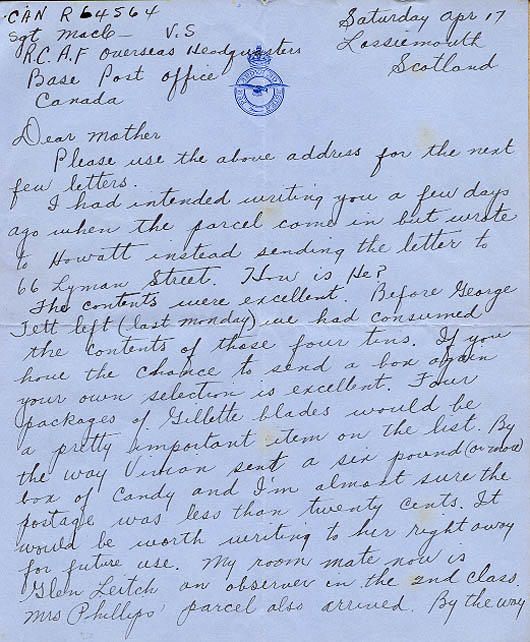 CAN R 64564
Sgt Macle— V.S
R.C.A.F Overseas Headquarters
Base Post Office
Canada
Saturday Apr 17
Lossiemouth
Scotland
Dear Mother
Please use the above address for the next
few letters.
I had intended writing you a few days
ago when the parcel came in but wrote
to Howatt instead sending the letter to
66 Lyman Street. How is He?
The contents were excellent. Before George
Tett left (last monday) we had consumed
the contents of those four tins. If you
have the chance to send a box again
your own selection is excellent. Four
packages of Gillette blades would be
a pretty important item on the list. By
the way Vivian sent a six pound (or more)
box of Candy and I'm almost sure the
postage was less than twenty cents. It
would be worth writing to her right away
for future use. My room mate now is
Glen Leitch an observer in the 2nd class.
Mrs Phillips' parcel also arrived. By the way